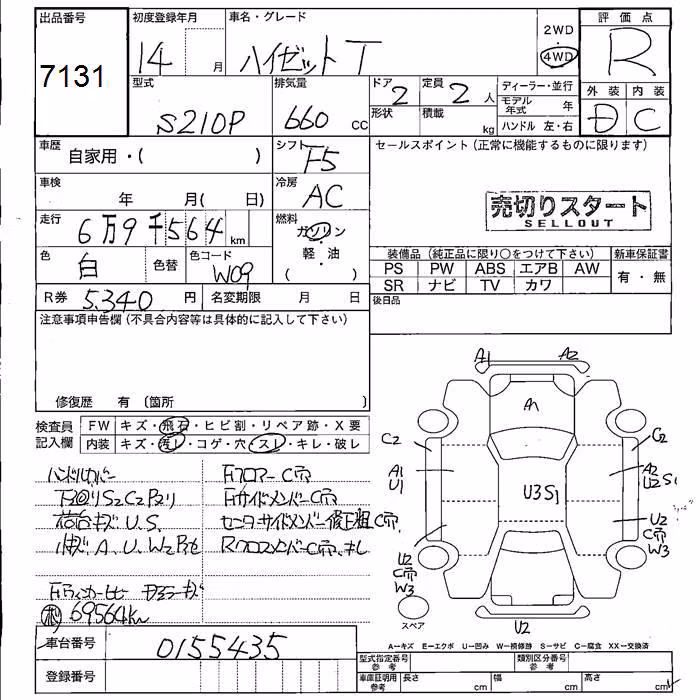 出品番号
7131
初度登録年月
14 月
車名・グレード
ハイゼットT
2WD
・
4WD
評価点
R
外装 内装
D C
型式
S210P
排気量
660 CC
ドア
2
形状
定員
2 人
積載
kg
ディーラー・並行
モデル年式 年
ハンドル 左・右
車歴
自家用・( )
シフト
F5
セールスポイント(正常に機能するものに限ります)
車検
年 月( 日)
冷房
AC
売切りスタート
SELLOUT
走行
6万9千564 km
燃料
ガソリン
・
軽・油
( )
色
白
色替
色コード
W09
装備品(純正品に限り○をつけて下さい)
新車保証書
PS PW ABS エアB AW
SR ナビ TV カワ
有・無
R券 5.340 円
名変期限 月 日
後日品
注意事項申告欄(不具合内容等は具体的に記入して下さい)
修復歴 有(箇所
検査員
記入欄
FW キズ・飛石・ヒビ割・リペア跡・X要
内装 キズ・汚レ・コゲ・穴・スレ・キレ・破レ
ハンドルカバー
荷台キズU.S.
Fフロアー C
Fサイドメンバー C
センターサイドメンバー修正
Rクロスメンバー C
69564km
A1 A2
A1
C2 C2
A1
U1
A2
U2 S1
U3S1
U2
C
W3
U2
C
W3
スペア
U2
車台番号 0155435
登録番号
A-キズ E-エクボ U-凹み W-補修跡 S-サビ C-腐食 XX-交換済
型式指定番号
参考
類別区分番号
参考
車庫証明用
参考
長さ cm
幅 cm
高さ cm